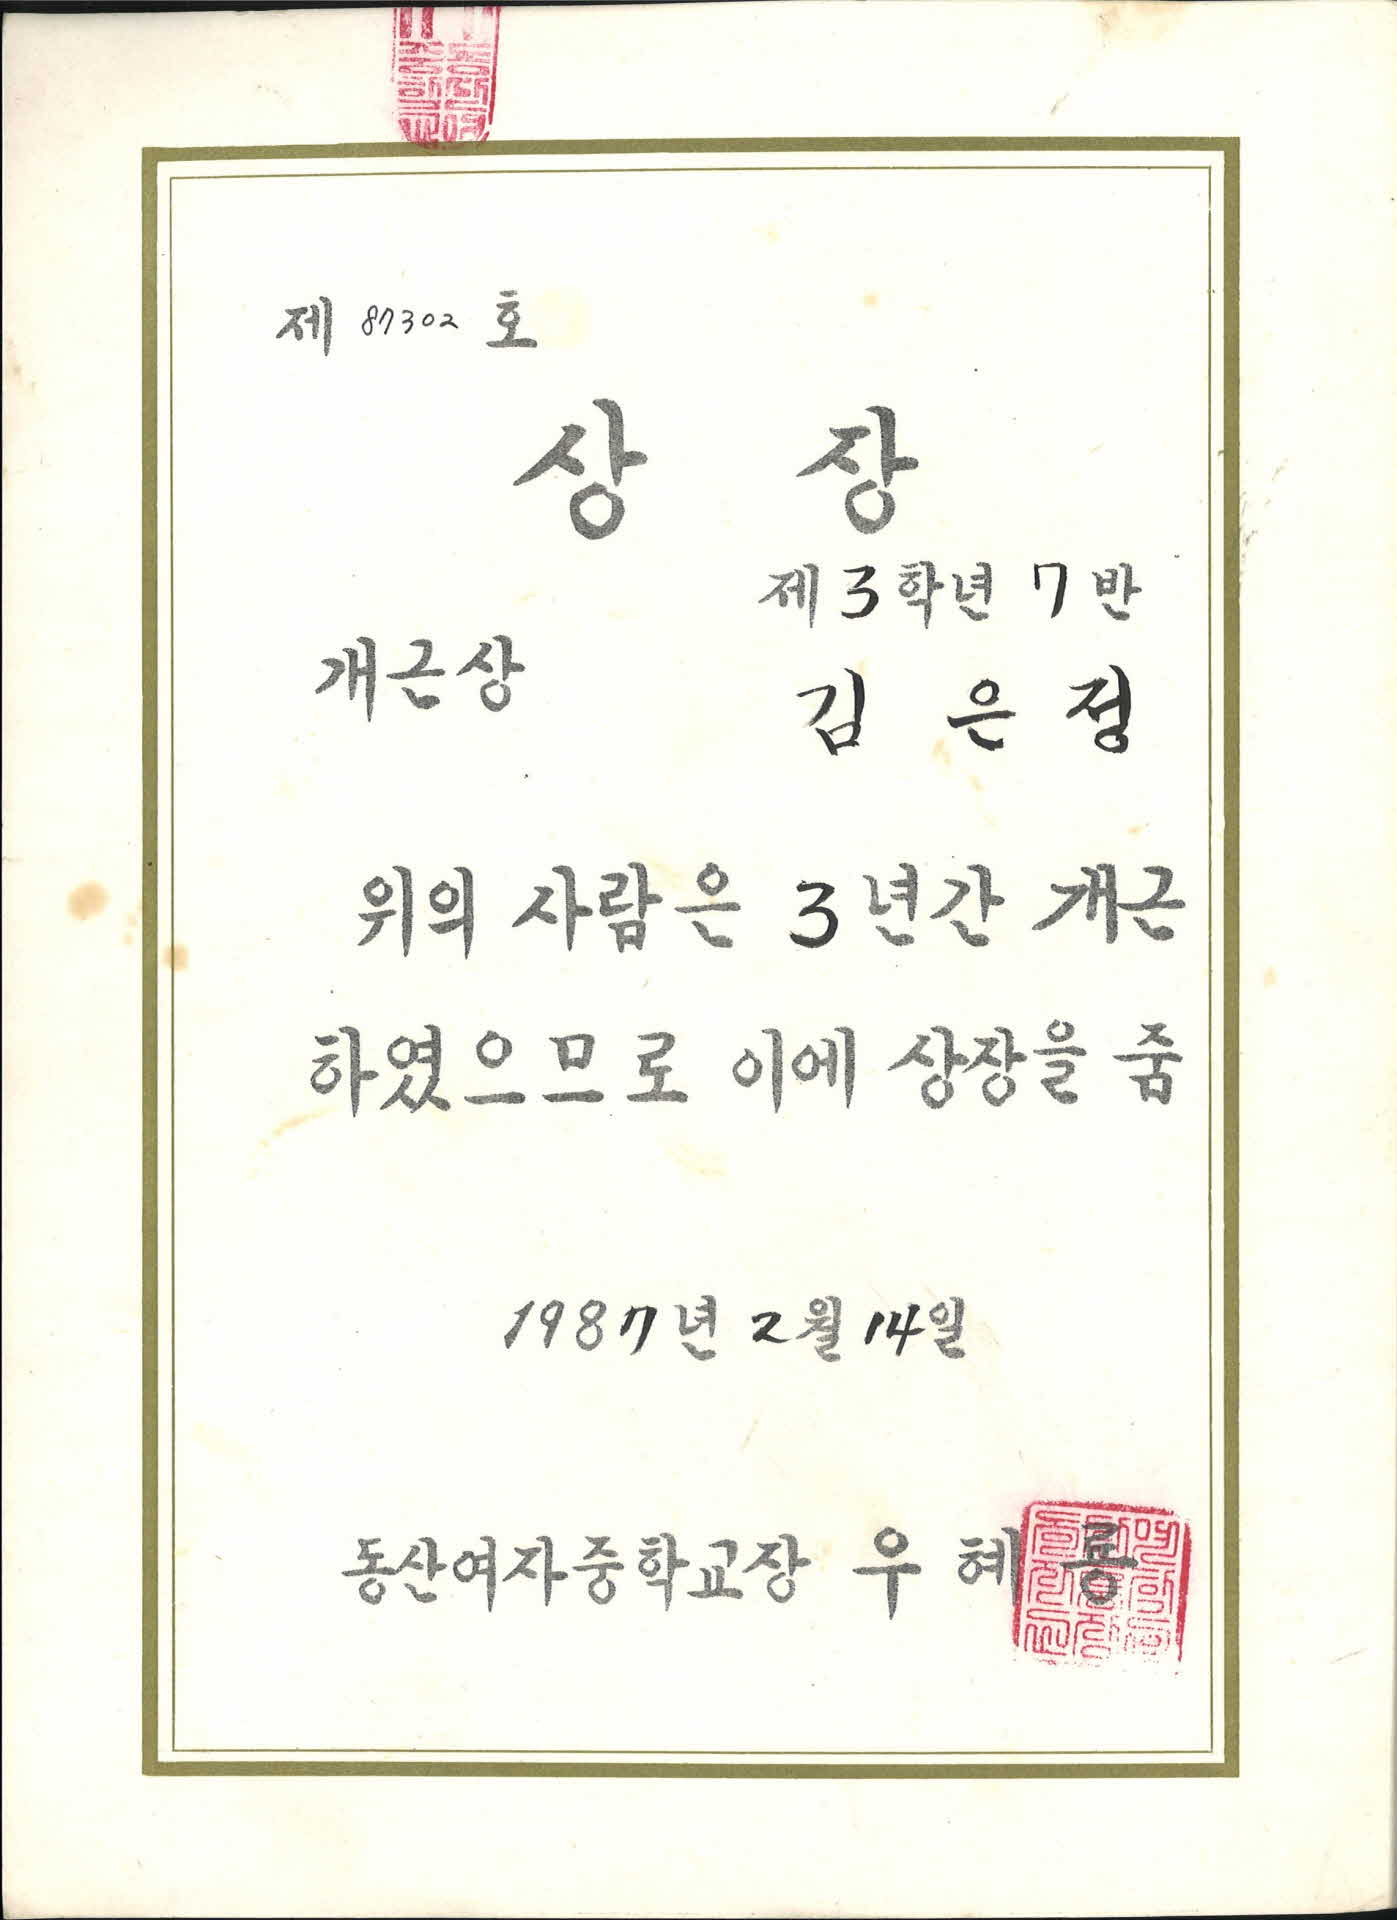 제 87302 호
상 장
제 3 학년 7 반
개근상
김 은 정
위의 사람은 3 년간 개근
하였으므로 이에 상장을 줌
1987년 2월 14일
동산여자중학교장 우 혜 룡